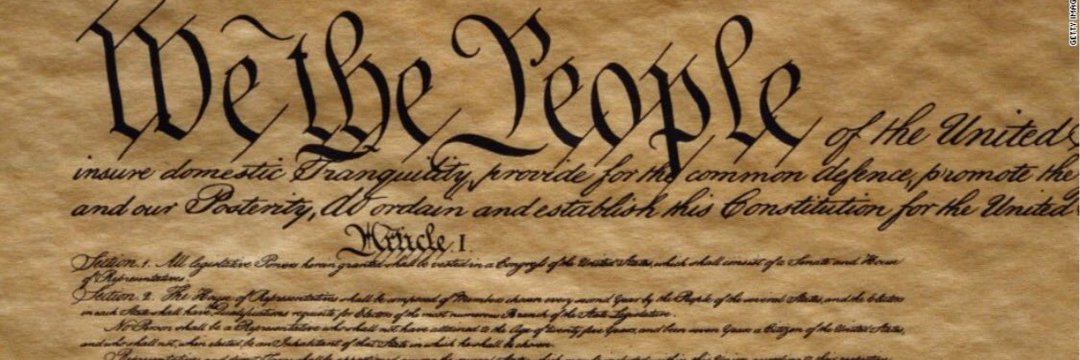 We the People of the United S
insure domestic Tranquility, provide for the common defence, promote the
and our Posterity, do ordain and establish this Constitution for the United
Article. I.
Section. 1. All legislative Powers herein granted shall be vested in a Congress of the United States, which shall consist of a Senate and House
of Representatives.
Section. 2. The House of Representatives shall be composed of Members chosen every second Year by the People of the several States, and the Electors
in each State shall have Qualifications requisite for Electors of the most numerous Branch of the State Legislature.
No Person shall be a Representative who shall not have attained to the Age of twenty five Years, and been seven Years a Citizen of the United States,
and who shall not, when elected, be an Inhabitant of that State in which he shall be chosen.
Representatives and direct Taxes shall be apportioned among the several States
GETTY IMAG